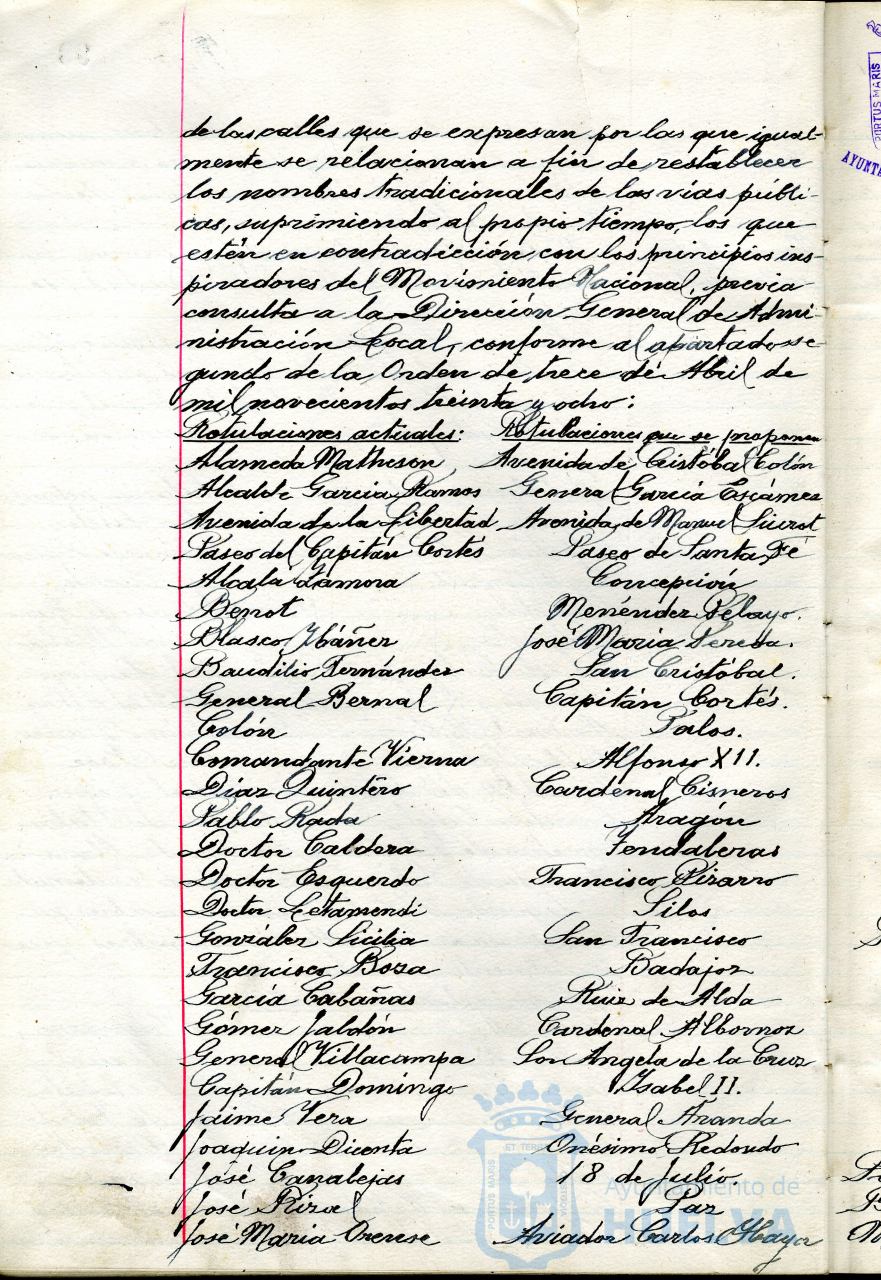 de las calles que se expresan por las que igual-
mente se relacionan a fin de restablecer
los nombres tradicionales de las vías públi-
cas, suprimiendo al propio tiempo, los que
estén en contradicción con los principios ins-
piradores del Movimiento Nacional, previa
consulta a la Dirección General de Admi-
nistración Local, conforme al apartado se-
gundo de la Orden de trece de Abril de
mil novecientos treinta y ocho:
Rotulaciones actuales: Rotulaciones que se proponen
Alameda Matheson Avenida de Cristóbal Colón
Alcalde García Ramos General García Escámez
Avenida de la Libertad Avenida de Manuel Siurot
Paseo del Capitán Cortés Paseo de Santa Fé
Alcalá Zamora Concepción
Benot Menéndez Pelayo.
Blasco Ybáñez José María Pereda.
Baudilio Fernández San Cristóbal.
General Bernal Capitán Cortés.
Colón Palos.
Comandante Vierna Alfonso XII.
Díaz Quintero Cardenal Cisneros
Pablo Rada Aragón
Doctor Caldera Fendaleras
Doctor Esquerdo Francisco Pizarro
Doctor Letamendi Silos
González Sicilia San Francisco
Francisco Boza Badajoz
García Cabañas Ruiz de Alda
Gómez Jaldón Cardenal Albornoz
General Villacampa Sor Angela de la Cruz
Capitán Domingo Ysabel II.
Jaime Vera General Aranda
Joaquin Dicenta Onésimo Redondo
José Canalejas 18 de Julio.
José Rizal Paz
José Maria Orense Aviador Carlos Haya
PORTUS MARIS
ET TERRAE
CUSTODIA
Ayuntamiento de
HUELVA
PORTUS MARIS
AYUNTA